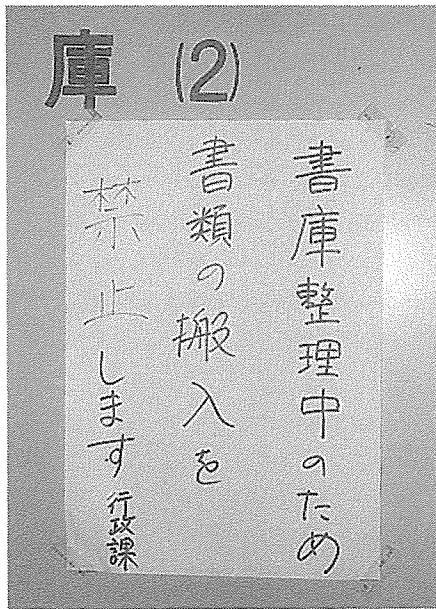 庫(2)
書庫整理中のため
書類の搬入を
禁止します
行政課